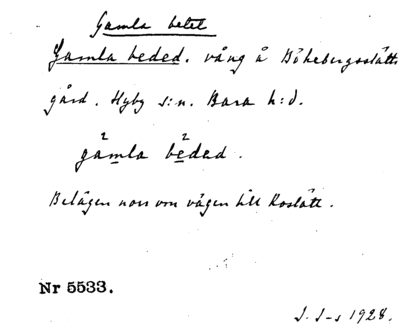 Gamla betet
Gamla beded. vång å Bökebergsslätts
gård. Hyby s:n. Bara h:d.
gamla beded.
Belägen norr om vägen till Roslätt.
Nr 5533.
I. I-s 1928.